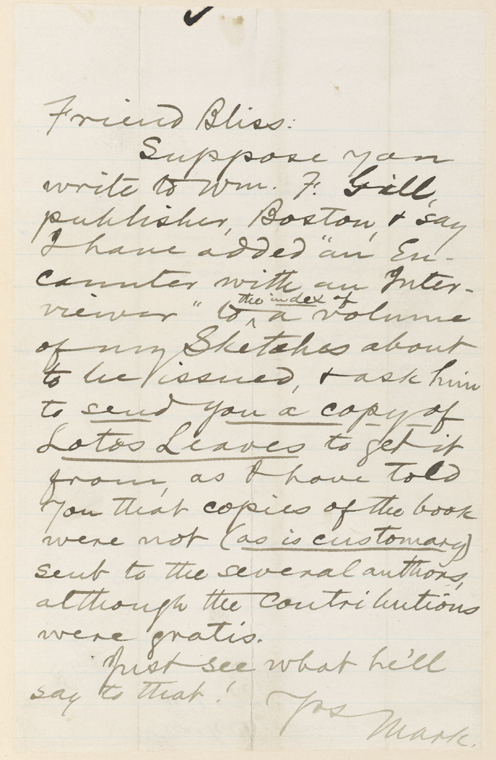 Friend Bliss:
Suppose you
write to Wm. F. Gill,
publisher, Boston, & say
I have added "an En-
counter with an Inter-
viewer" to the index of a volume
of my Sketches about
to be issued, & ask him
to send you a copy of
Lotos Leaves to get it
from, as I have told
you that copies of the book
were not (as is customary)
sent to the several authors,
although the contributions
were gratis.
Just see what he'll
say to that!
Yrs
Mark.